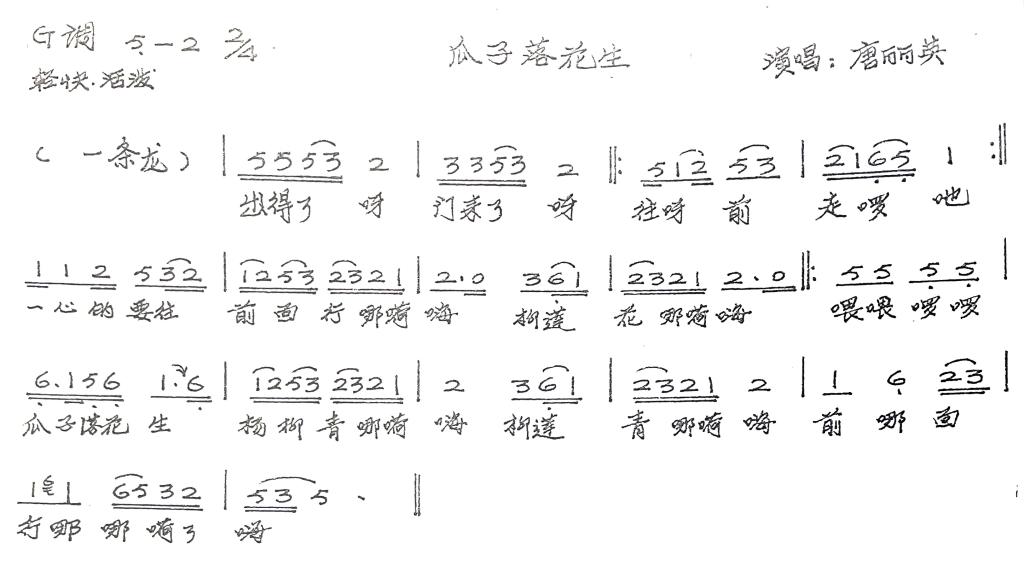 G调 5-2 2/4 瓜子落花生 演唱：唐丽英
轻快.活泼
（一条龙） | 5553 2 | 3353 2 ‖: 512 53 | 2165 1 :‖
出得了 呀 门来了 呀 往呀 前 走啰 吔
112 532 | 1253 2321 | 2·0 361 | 2321 2·0 ‖: 55 55 |
一心的 要往 前面行哪嗬 嗨 柳莲 花哪嗬嗨 喂喂 啰啰
6.156 1.6 | 1253 2321 | 2 361 | 2321 2 | 1 6 23 |
瓜子落花 生 杨柳青哪嗬 嗨 柳莲 青哪嗬 嗨 前 哪 面
11 6532 | 53 5 . ‖
行哪 哪嗬了 嗨